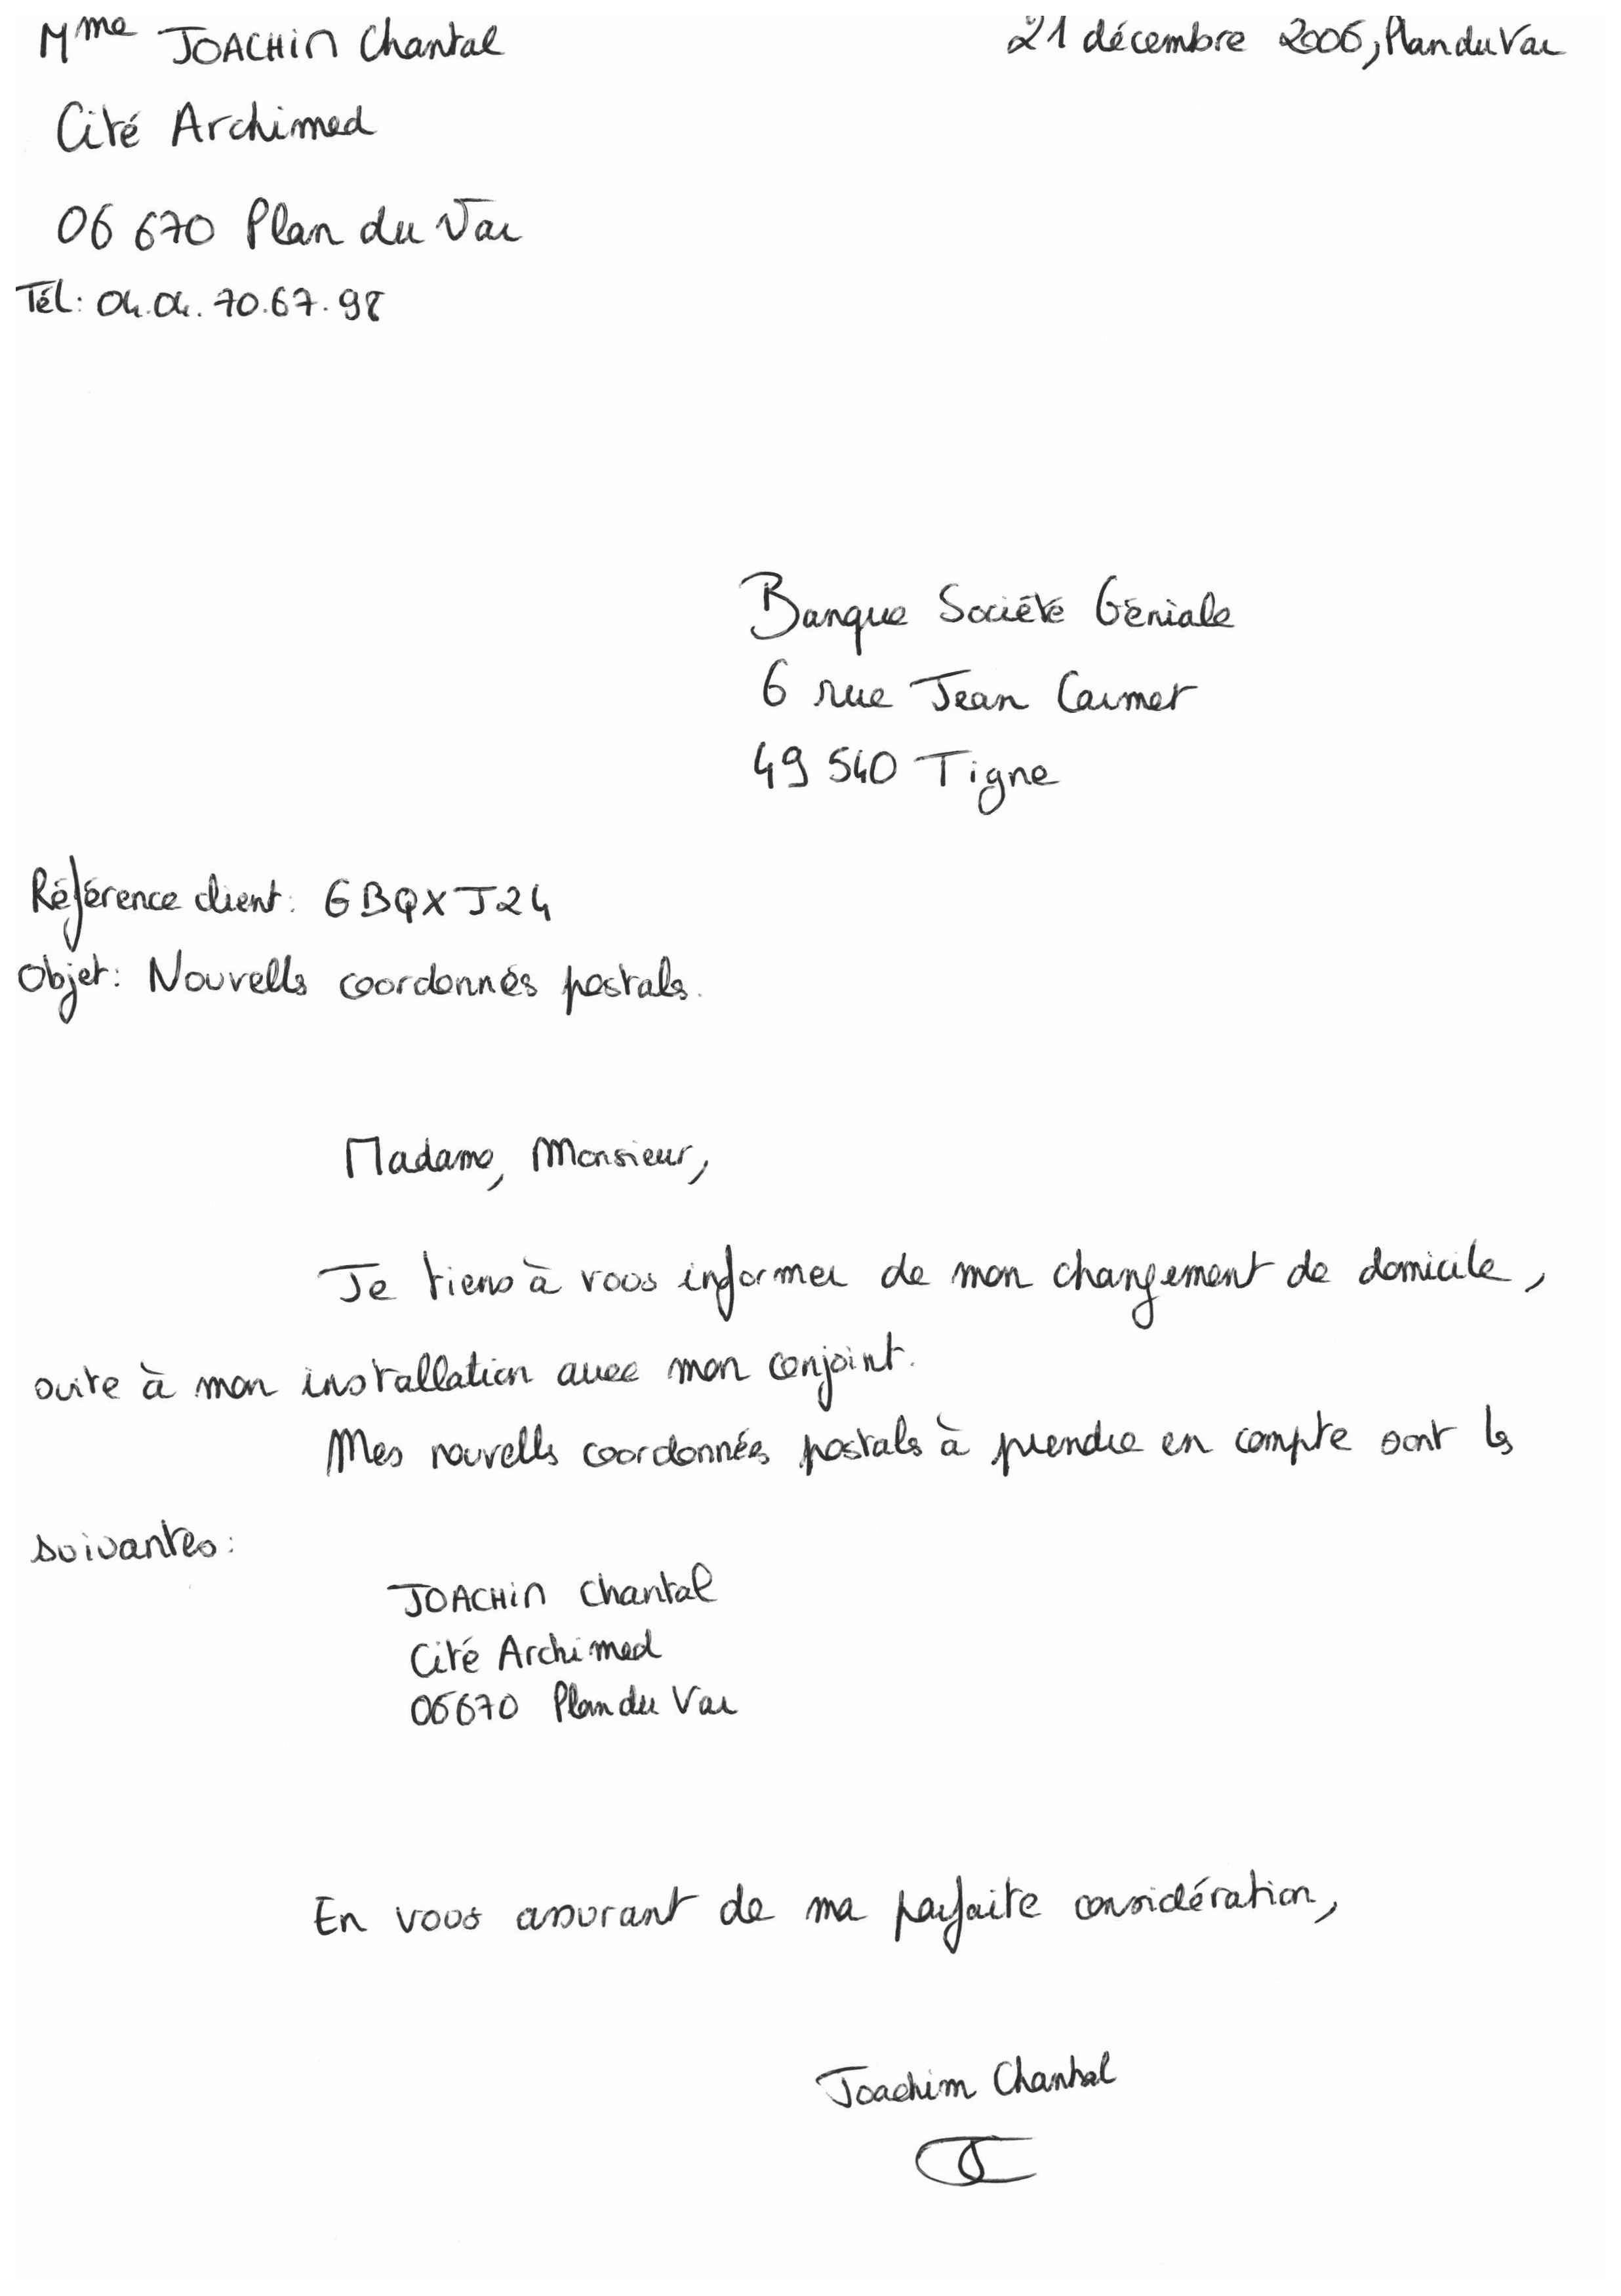 Mme JOACHIN Chantal
21 décembre 2006, Plan du Var
Cité Archimed
06 670 Plan du Var
Tél: 04.04.70.67.98
Banque Société Géniale
6 rue Jean Carmet
49 540 Tigne
Référence client: GBQXJ24
Objet: Nouvells coordonnés postals.
Madame, Monsieur,
Je tiens à vous informer de mon changement de domicile,
suite à mon installation avec mon conjoint.
Mes nouvells coordonnées postals à prendre en compte sont ls
suivantes:
JOACHIN Chantal
Cité Archimed
06670 Plan du Var
En vous assurant de ma parfaite considération,
Joachim Chantal
JC